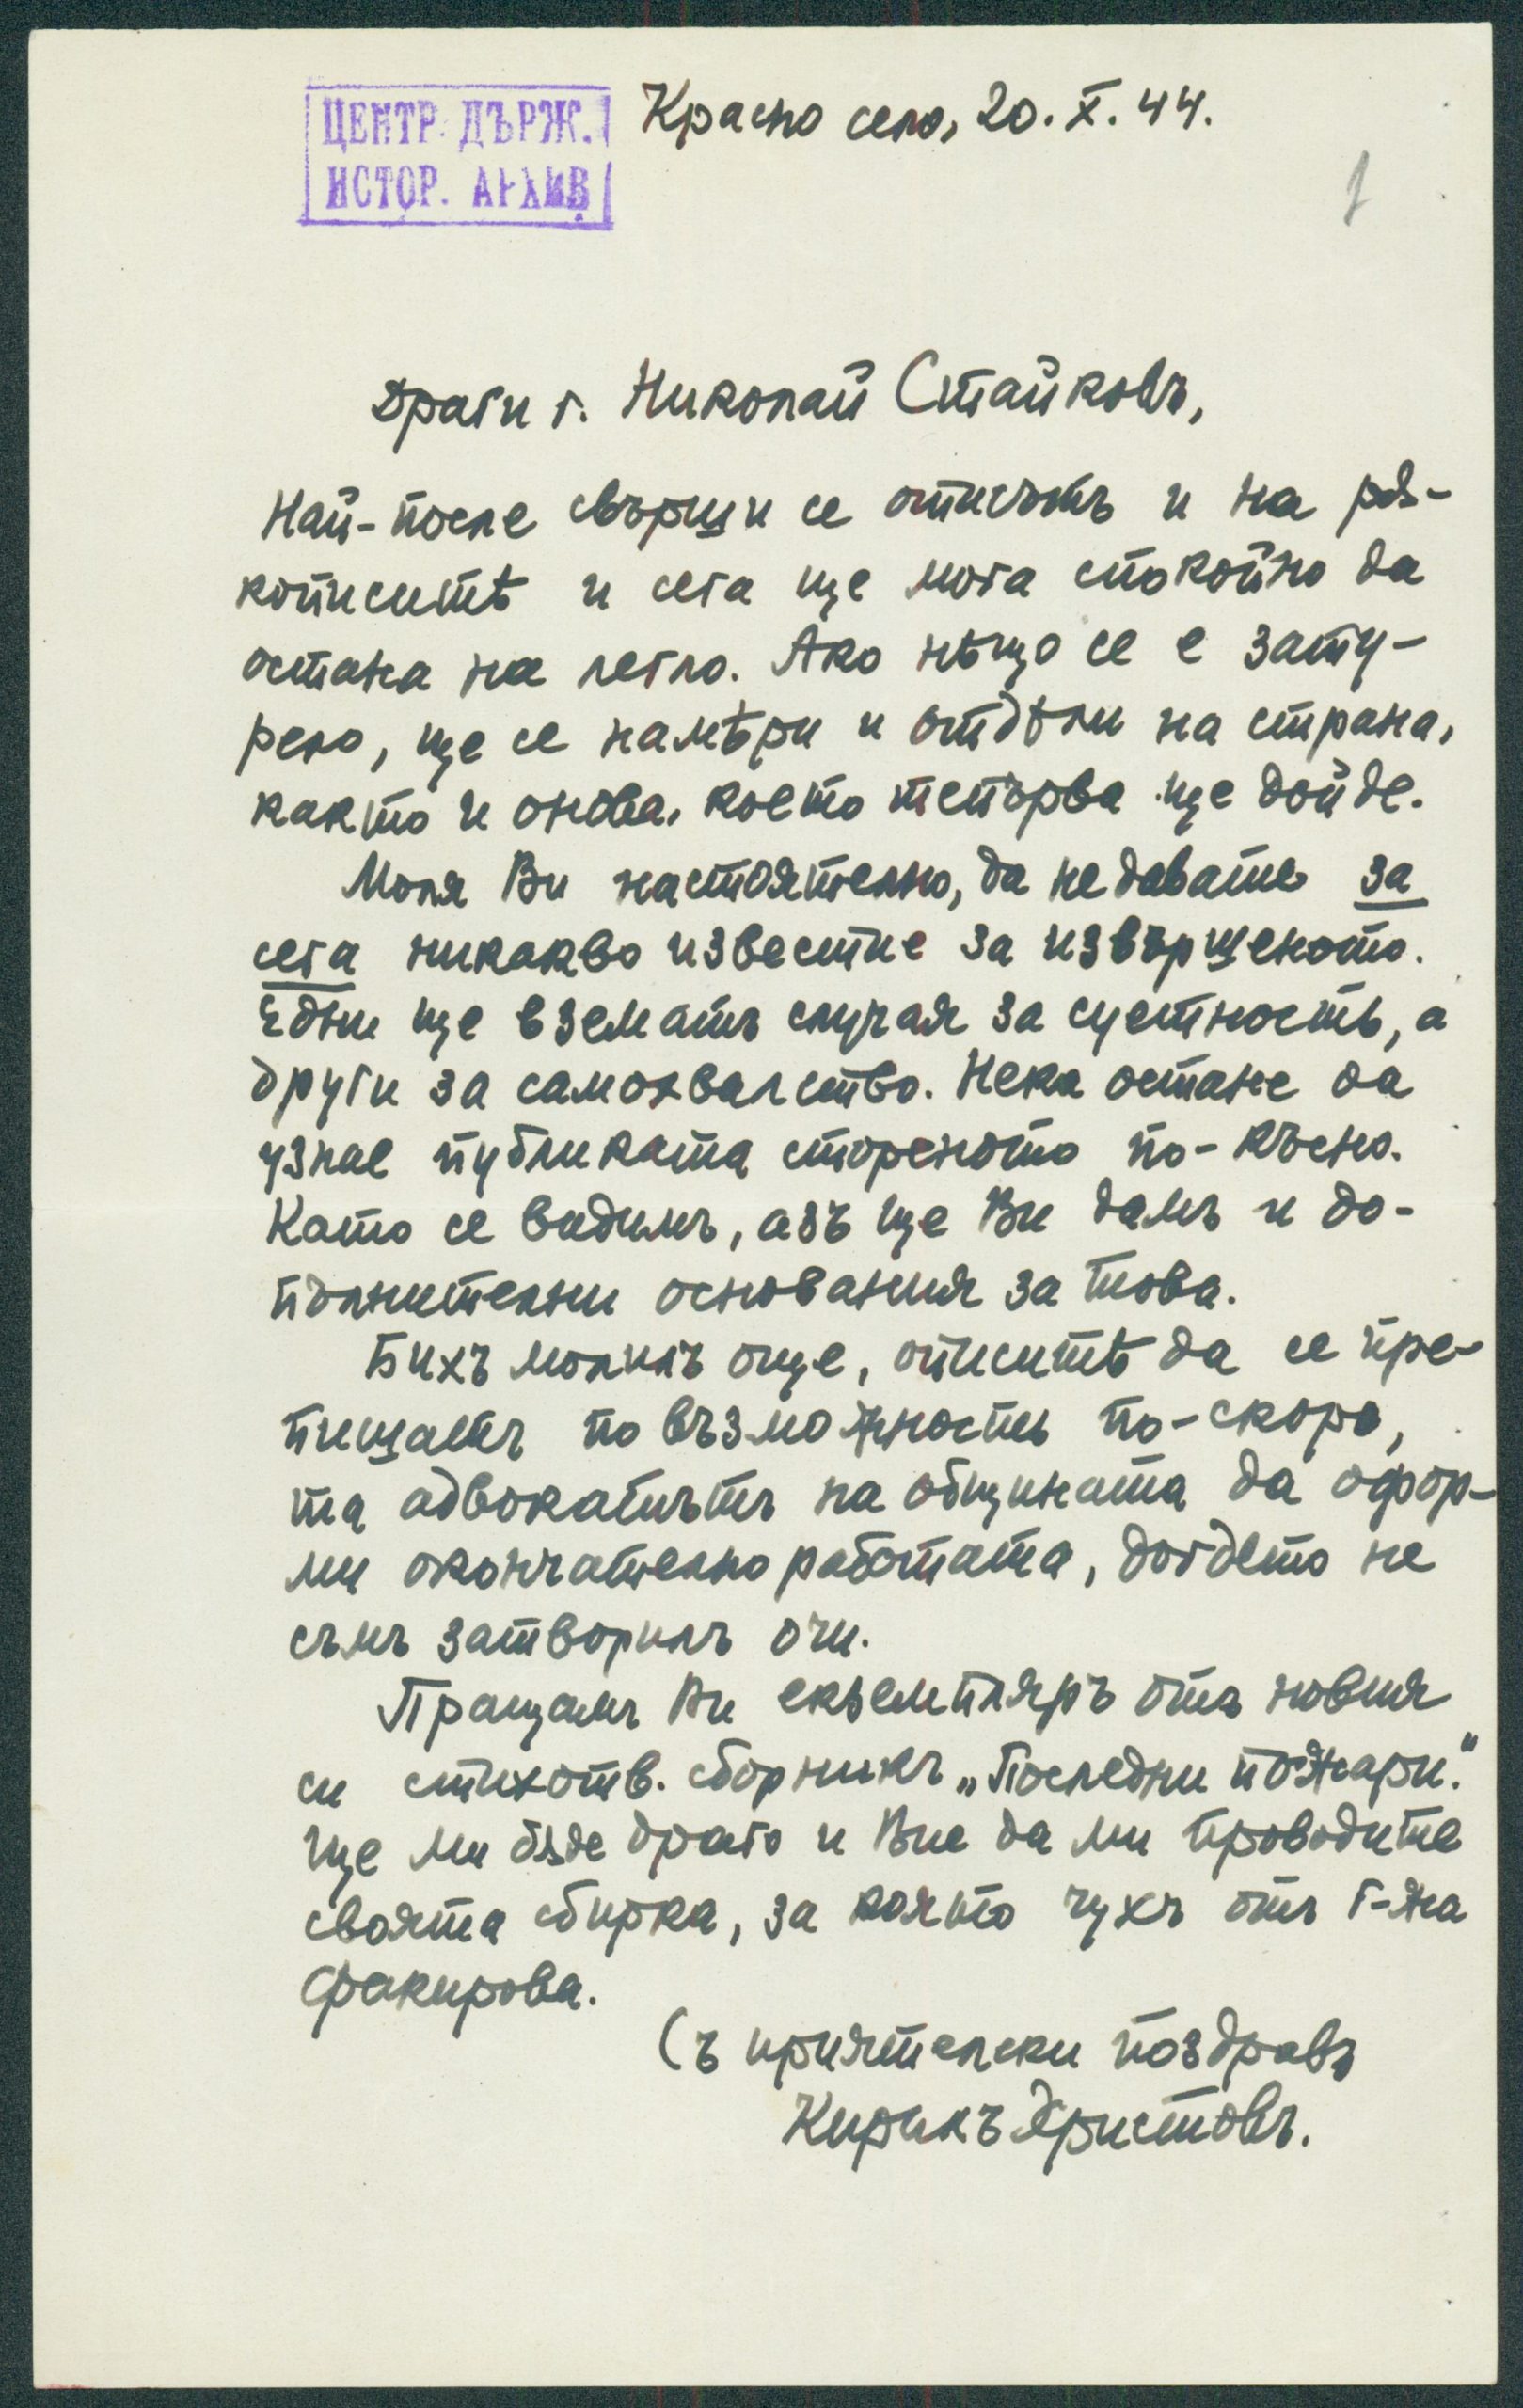 ЦЕНТР. ДЪРЖ.
ИСТОР. АРХИВ
Красно село, 20. X. 44.
1
Драги г. Николай Стайковъ,
Най-после свърши се описътъ и на рѫ-
кописитѣ и сега ще мога спокойно да
остана на легло. Ако нѣщо се е зату-
рело, ще се намѣри и отдѣли на страна,
както и онова, което тепърва ще дойде.
Моля Ви настоятелно, да не давате за
сега никакво известие за извършеното.
Едни ще взематъ случая за суетность, а
други за самохвалство. Нека остане да
узнае публиката стореното по-късно.
Като се видимъ, азъ ще Ви дамъ и до-
пълнителни основания за това.
Бихъ молилъ още, описитѣ да се пре-
пишатъ по възможность по-скоро,
та адвокатътъ на общината да офор-
ми окончателно работата, догдето не
съмъ затворилъ очи.
Пращамъ Ви екземпляръ отъ новия
си стихотв. сборникъ „Последни пожари."
Ще ми бѫде драго и Вие да ми проводите
своята сбирка, за която чухъ отъ г-жа
Факирова.
Съ приятелски поздравъ
Кирилъ Христовъ.